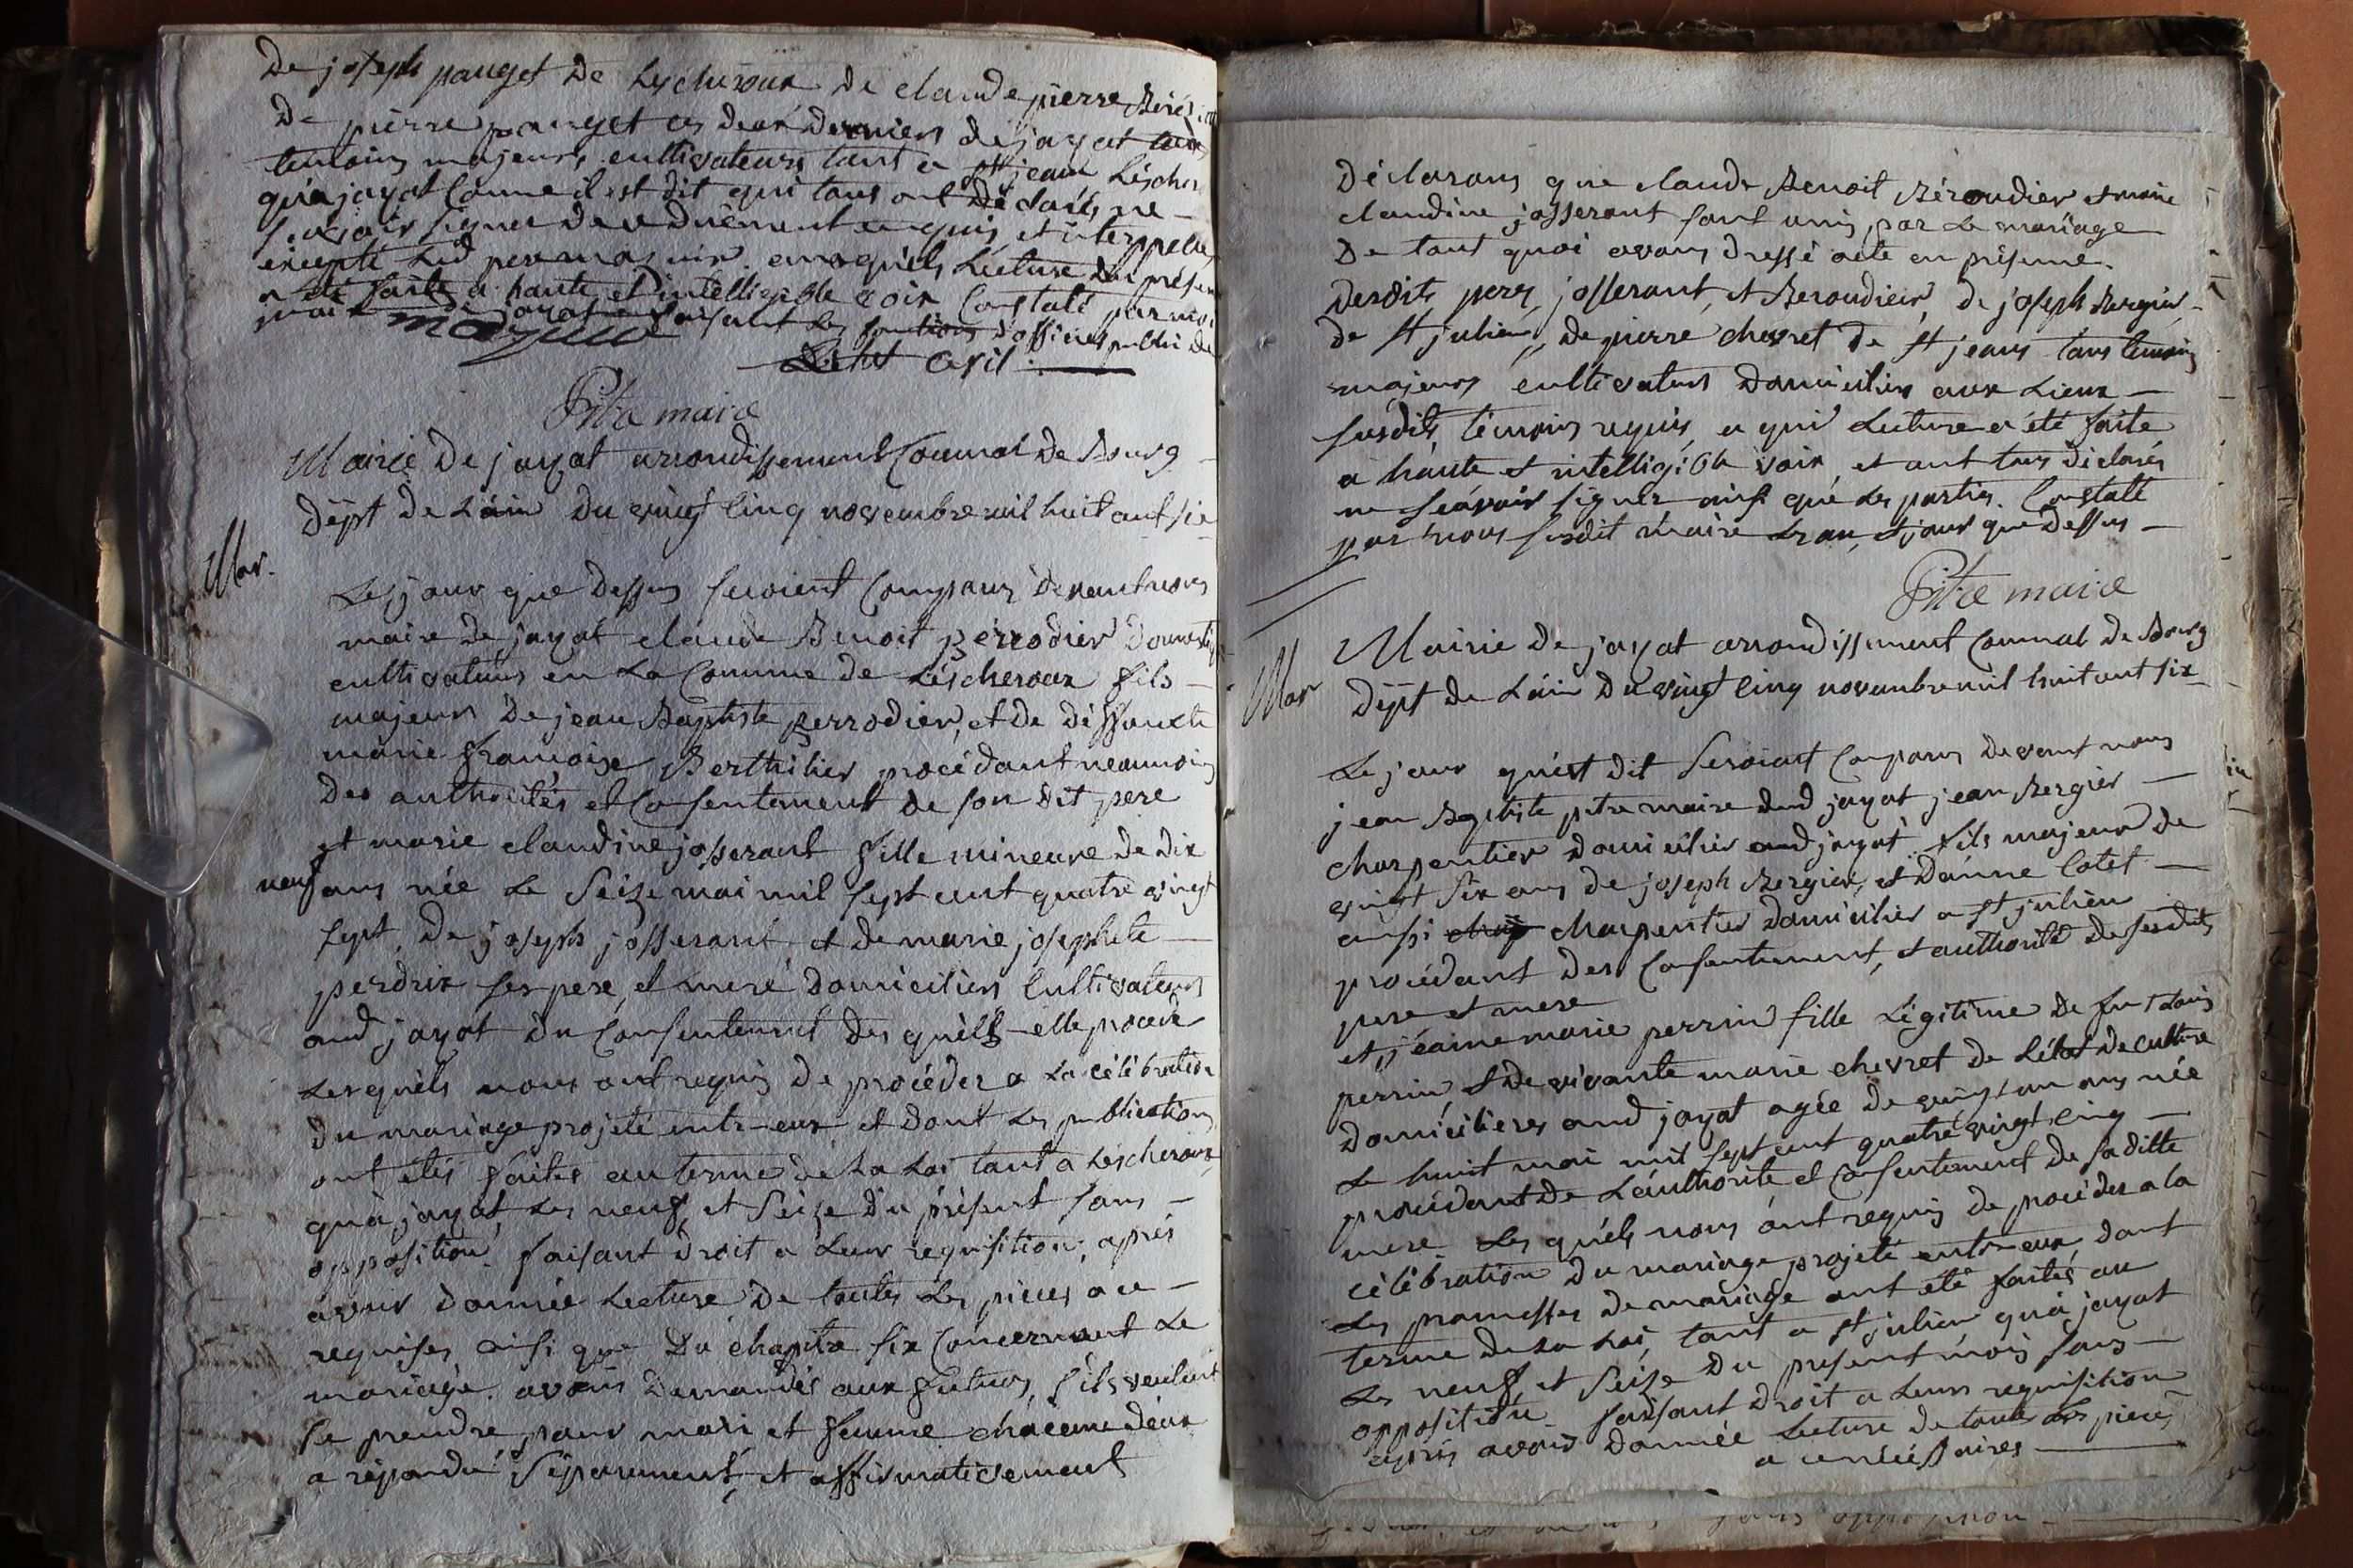 De joseph pauget De Lescheroux De claude pierre
De pierre pauget ces deux Derniers De jayat
temoins majeurs cultivateurs tant a st jean
qu'a jayat Comme il est dit qui tous ont Déclarés ne
scavoir signer De ce Duëment enquis et interppellés
excepté auxquels Lecture Du présent
a été faite a haute et intelligible voix Constaté par moi
maire De jayat faisant les fonctions D'officier public De
mazuir
L'etat Civil
Pitre maire
Mairie De jayat arrondissement Comunal De Bourg
Dépt De L'ain Du vingt Cinq novembre mil huit cent six
Mar.
Les jour que Dessus seroient Comparus Devant nous
maire De jayat claude Benoit perrodier Domestiq
cultivateurs en La Comune de Léscheroux fils
majeur De jean Baptiste perrodier, et De Déffuncte
marie françoise Berthilier procédant neaumoins
Des authorités et Consentement De son Dit pere
et marie claudine josserant fille mineure De Dix
neuf ans née Le Seize mai mil sept cent quatre vingt
sept, De joseph josserant et De marie josephete
perdrix ses pere, et mere Domiciliers Cultivateurs
aud jayat Du Consentement Des quels elle procede
Lesquels nous ont requis De procéder a La célébration
Du mariage projeté entr-eux et Dont Les publications
ont étés faites au terme De La Loi tant a Léscheroux
qu'a jayat, Les neuf et Seize Du présent sans
opposition. faisant Droit a Leur requisition, après
avoir Donnée Lecture De toutes Les pieces a ce
requises ainsi que Du chapitre six Concernant Le
mariage. avons Demandés aux futurs, s'ils veulent
se prendre pour mari et femme chacune D'eux
a répondu Séparement, et affirmativement
Déclarons que claude Benoit Béroudier et marie
claudine josserant sont unis par Le mariage
De tout quoi avons Dressé acte en présence
Desdits peres josserant, et Beroudier, De joseph Bergier
De st julien, De pierre chevret De st jean, tous temoins
majeurs cultivateurs Domicilier aux Lieux
susdits, témoins requis, a qui Lecture a été faite
a haute et intelligible voix, et ont tous Déclarés
ne scavoir signer ainsi que Les parties. Constaté
par nous susdit maire Les an, et jour que Dessus
Pitre maire
Mairie De jayat arrondissement Comunal De Bourg
Mar
Dépt De L'ain Du vingt Cinq novembre mil huit cent six
Le jour qu'est dit Seroient Comparus Devant nous
jean Baptiste pitre maire Dud jayat jean Bergier
charpentier Domicilier aud jayat fils majeur De
vingt six ans De joseph Bergier, et D'anne Cotet
aussi charpentier Domicilier a st julien
procédant Des Consentement, et authorité De sesdits
pere et mere
et jéanne marie perrin fille Légitime De fut Louis
perrin, et De vivante marie chevret De L'état De culture
Domicilieres aud jayat agée De vingt un ans née
Le huit mai mil sept cent quatre vingt cinq
procédant De L'authorité et Consentement De sa ditte
mere Les quels nous ont requis De procéder a La
célébration Du mariage projeté entr-eux, Dont
Les promesses De mariage ont été faites au
terme De La Loi, tant a st julien qu'a jayat
Les neuf, et Seize Du present mois sans
opposition faisant Droit a Leurs requisition
après avoir Donnée Lecture De toutes Les pieces
a ce nécessaires